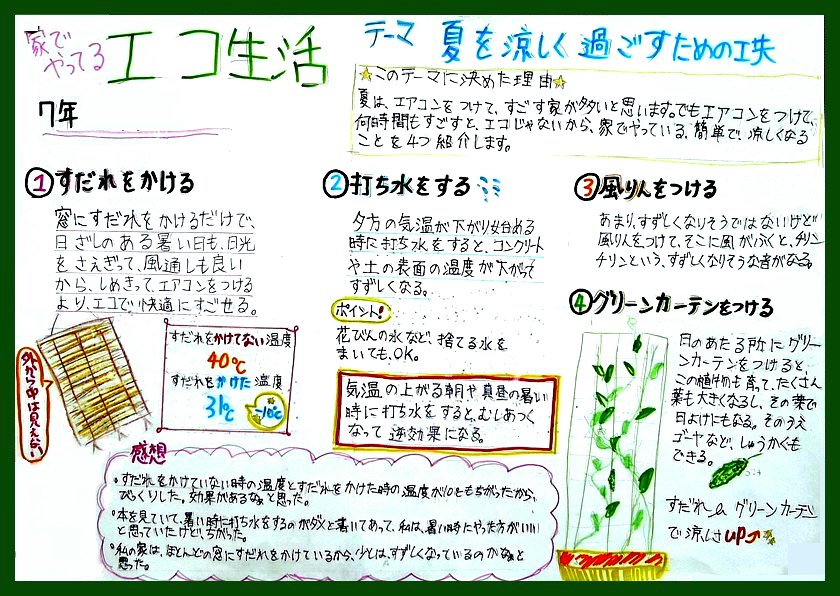 家で
やってる
エコ生活
テーマ 夏を涼しく過ごすための工夫
7年
☆このテーマに決めた理由☆
夏は、エアコンをつけて、すごす家が多いと思います。でもエアコンをつけて、
何時間もすごすと、エコじゃないから、家でやっている、簡単で、涼しくなる
ことを4つ紹介します。
①すだれをかける
窓にすだれをかけるだけで、
日ざしのある暑い日も、日光
をさえぎって、風通しも良い
から、しめきって、エアコンをつける
より、エコで快適にすごせる。
外から中は見えない
すだれをかけてない温度
40℃
すだれをかけた温度
31℃
-10℃
②打ち水をする
夕方の気温が下がり始める
時に打ち水をすると、コンクリート
や土の表面の温度が下がって
すずしくなる。
ポイント!
花びんの水など、捨てる水を
まいても、OK。
気温の上がる朝や真昼の暑い
時に打ち水をすると、むしあつく
なって逆効果になる。
③風りんをつける
あまり、すずしくなりそうではないけど
風りんをつけて、そこに風がふくと、チリン
チリンという、すずしくなりそうな音がなる。
④グリーンカーテンをつける
日のあたる所にグリー
ンカーテンをつけると、
この植物も育って、たくさん
葉も大きくなるし、その葉で
日よけにもなる。そのうえ
ゴーヤなど、しゅうかくも
できる。
すだれ グリーンカーテン
で涼しさUP
感想
・すだれをかけていない時の温度とすだれをかけた時の温度が10℃もちがったから、
びっくりした。効果があるなぁと思った。
・本を見ていて、暑い時に打ち水をするのがダメと書いてあって、私は、暑い時にやった方がいい
と思っていたけど、ちがった。
・私の家は、ほとんどの窓にすだれをかけているから、少しは、すずしくなっているのかなぁと
思った。